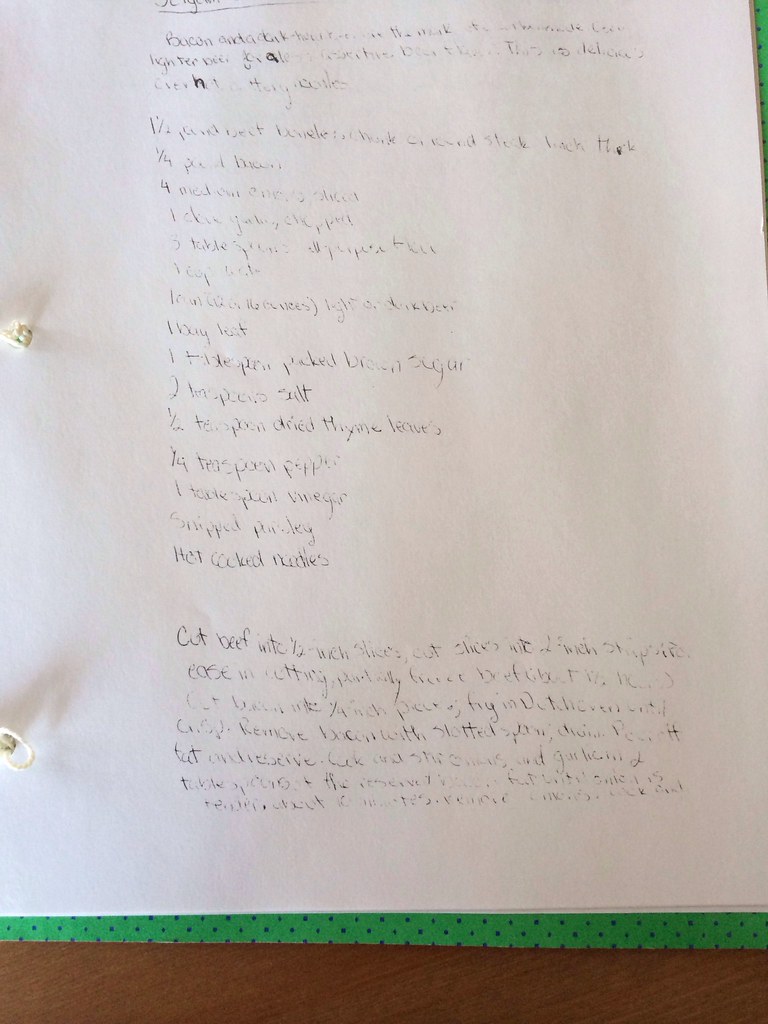 Bacon and a dark the mark homemade
lighter beer for a less assertive beer This is delicious
over hot buttery noodles
1½ pound beef boneless chuck or round steak 1 inch thick
¼ pound bacon
4 medium onions, sliced
1 clove garlic, chopped
3 tablespoons all-purpose flour
1 cup water
1 can (12 or 16 ounces) light or dark beer
1 bay leaf
1 tablespoon packed brown sugar
2 teaspoons salt
½ teaspoon dried thyme leaves
¼ teaspoon pepper
1 tablespoon vinegar
Snipped parsley
Hot cooked noodles
Cut beef into ½-inch slices, cut slices into 2-inch strips (for
ease in cutting, partially freeze beef about 1½ hours)
Cut bacon into ¼ inch pieces; fry in Dutch oven until
crisp. Remove bacon with slotted spoon; drain. Pour off
fat and reserve. Cook and stir onions and garlic in 2
tablespoons of the reserved bacon fat until onion is
tender, about 10 minutes. Remove onions. Cook and